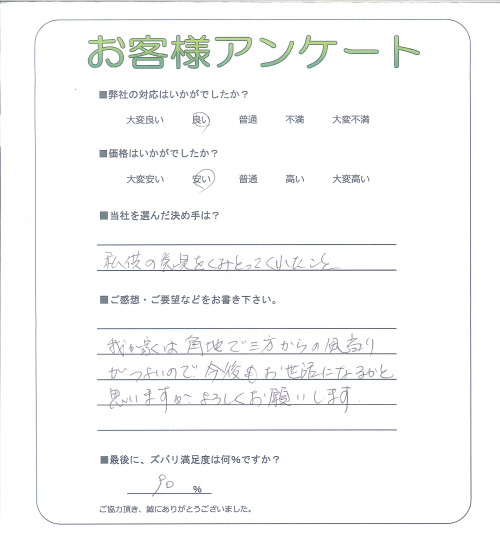 お客様アンケート
■弊社の対応はいかがでしたか？
大変良い 良い 普通 不満 大変不満
■価格はいかがでしたか？
大変安い 安い 普通 高い 大変高い
■当社を選んだ決め手は？
私供の意見をくみとってくれたこと
■ご感想・ご要望などをお書き下さい。
我が家は角地で三方からの風当り
がつよいので、今後もお世話になるかと
思いますが、よろしくお願いします。
■最後に、ズバリ満足度は何％ですか？
90 ％
ご協力頂き、誠にありがとうございました。